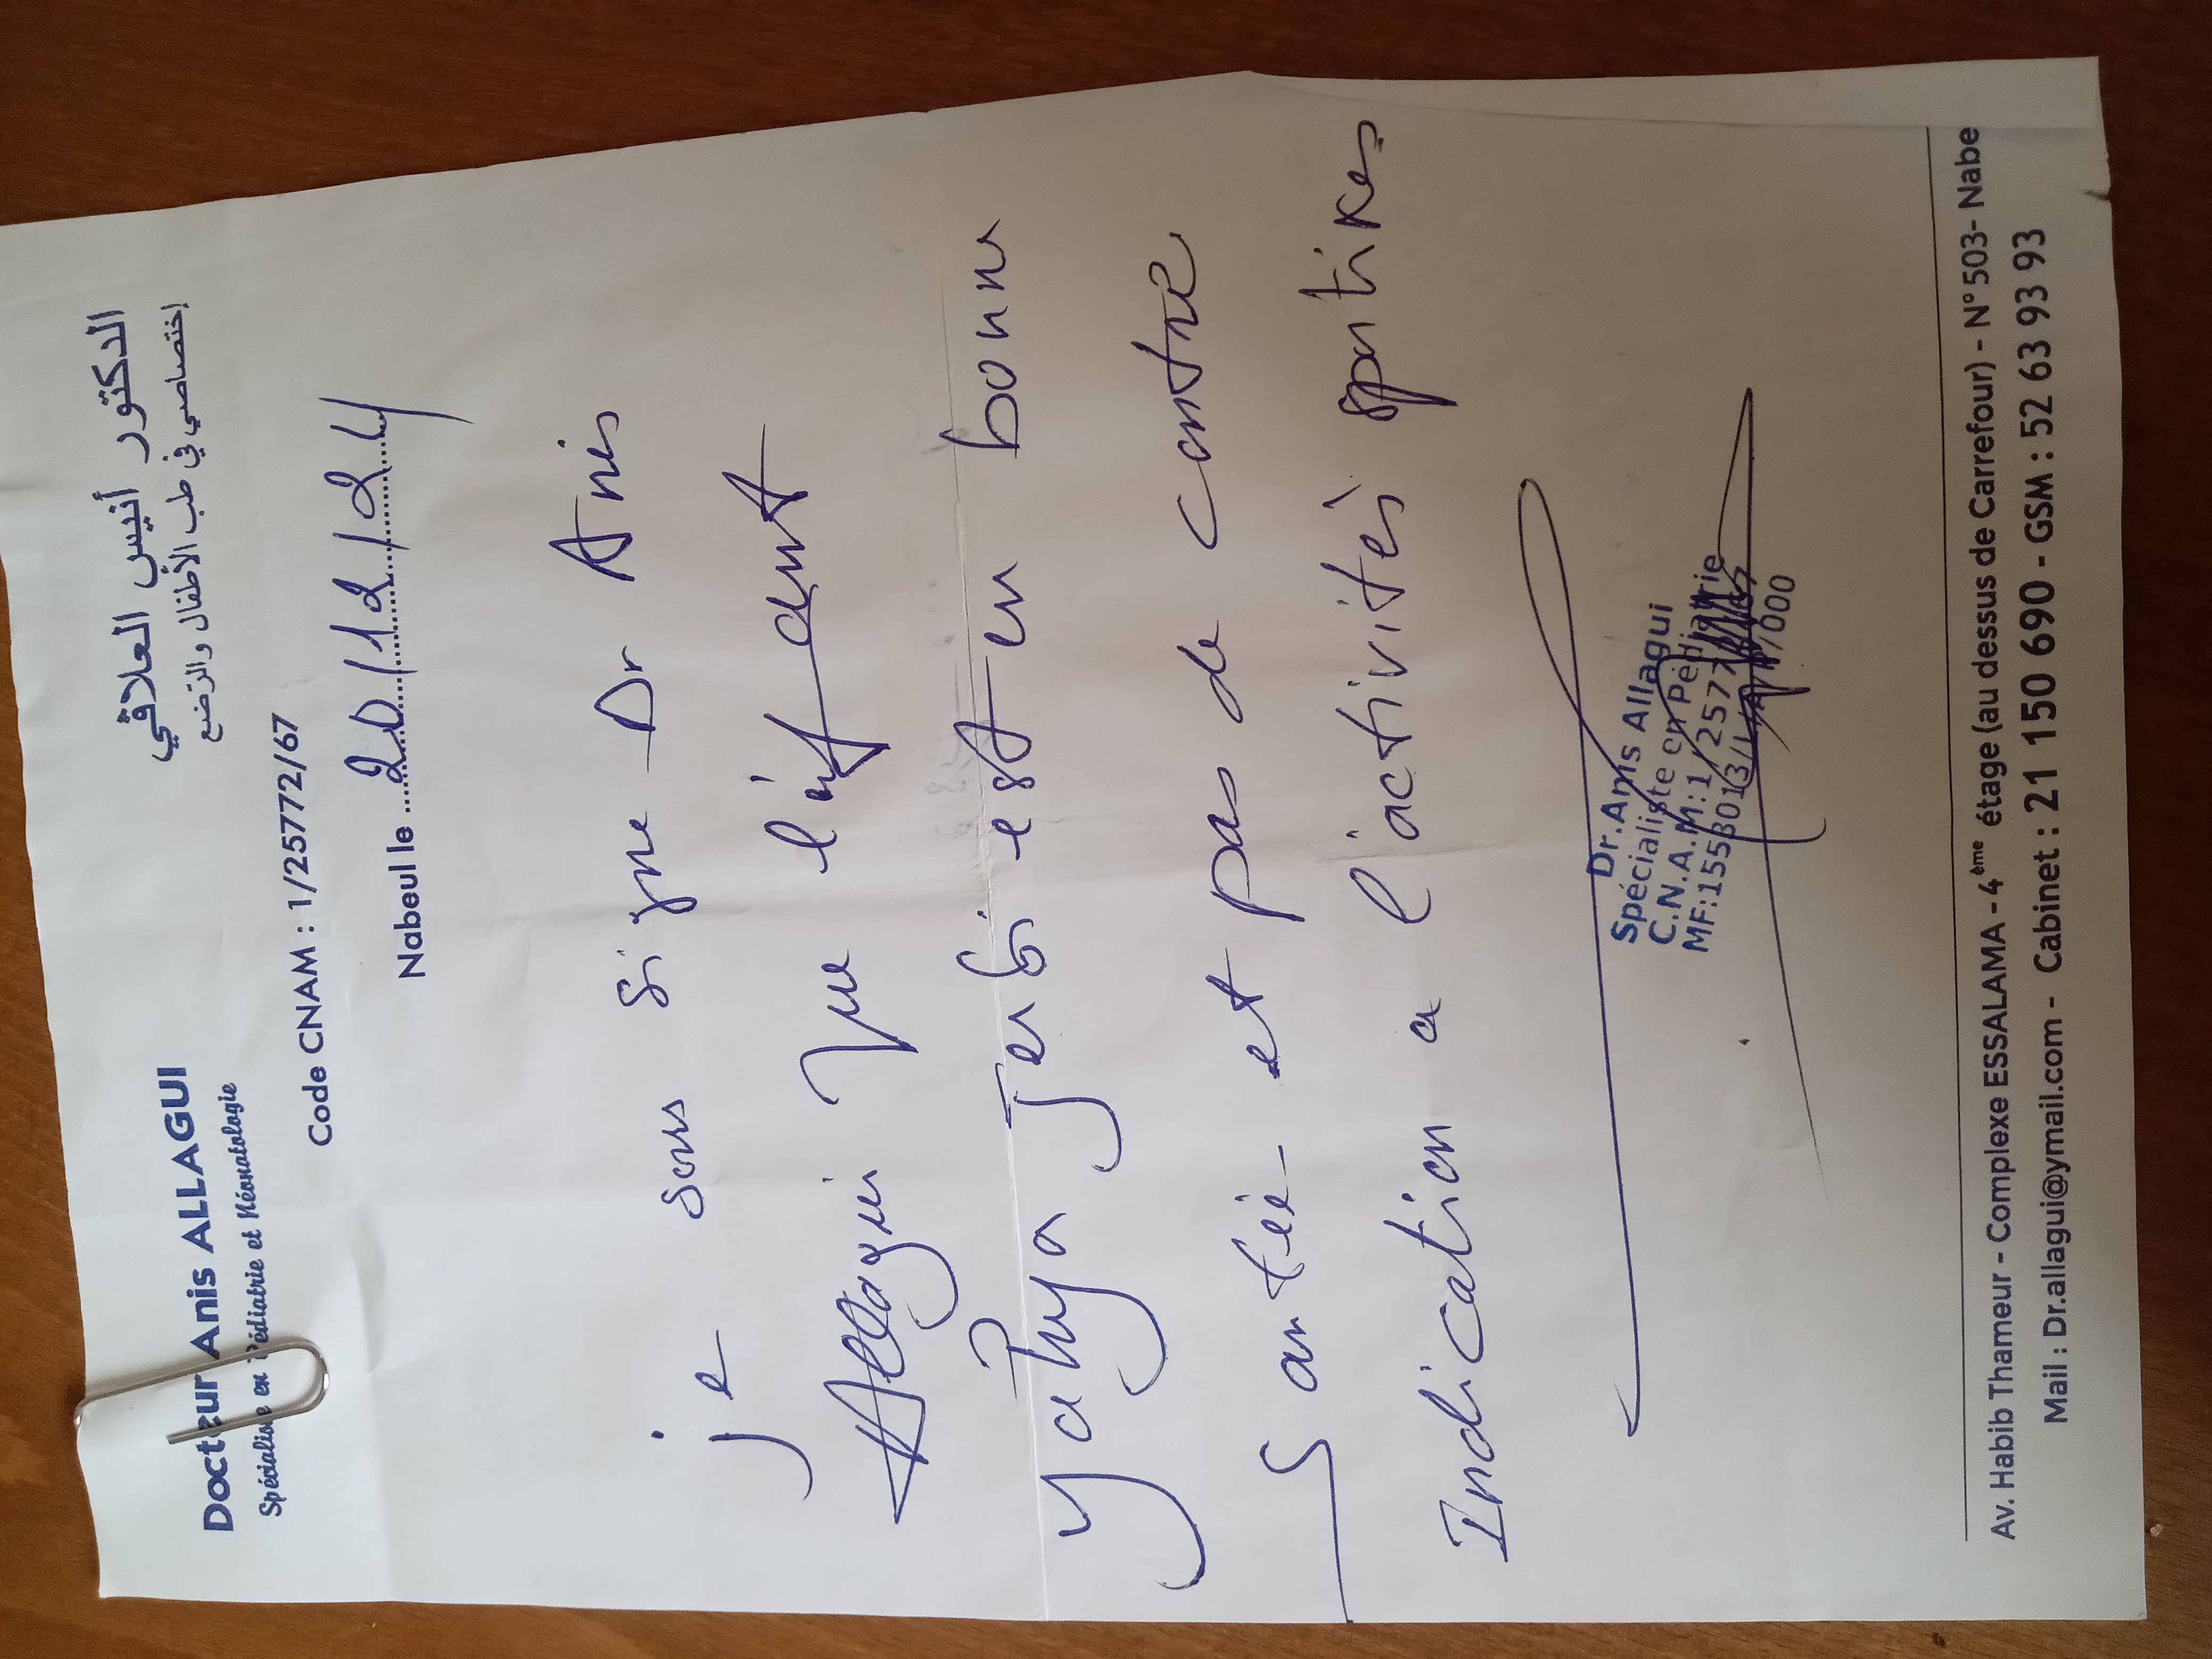 Docteur Anis ALLAGUI
Spécialiste en Pédiatrie et Néonatologie
الدكتور أنيس العلاقي
إختصاصي في طب الأطفال والرّضيع
Code CNAM : 1/25772/67
Nabeul le 20/12/24
je sous signe Dr Anis
Allagui que l'infant
yahya Jerbi est en bonne
Santéé et pas de contre
Indication a l'activités sportives
Dr.Anis Allagui
Spécialiste en Pédiatrie
C.N.A.M:1/2577
MF:1553013/ /000
Av. Habib Thameur - Complexe ESSALAMA - 4ème étage (au dessus de Carrefour) - N°503- Nabe
Mail : Dr.allagui@ymail.com - Cabinet : 21 150 690 - GSM : 52 63 93 93